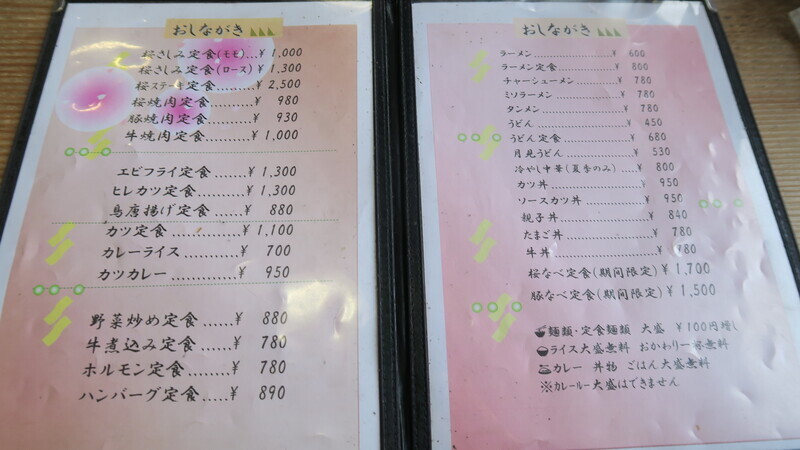 おしながき
桜さしみ定食(モモ)...¥ 1,000
桜さしみ定食(ロース)...¥ 1,300
桜ステーキ定食......¥ 2,500
桜焼肉定食......¥ 980
豚焼肉定食......¥ 930
牛焼肉定食......¥ 1,000
エビフライ定食......¥ 1,300
ヒレカツ定食......¥ 1,300
鳥唐揚げ定食......¥ 880
カツ定食......¥ 1,100
カレーライス......¥ 700
カツカレー......¥ 950
野菜炒め定食......¥ 880
牛煮込み定食......¥ 780
ホルモン定食......¥ 780
ハンバーグ定食......¥ 890
おしながき
ラーメン......¥ 600
ラーメン定食......¥ 800
チャーシューメン......¥ 780
ミソラーメン......¥ 780
タンメン......¥ 780
うどん......¥ 450
うどん定食......¥ 680
月見うどん......¥ 530
冷やし中華(夏季のみ)...¥ 800
カツ丼......¥ 950
ソースカツ丼......¥ 950
親子丼......¥ 840
たまご丼......¥ 780
牛丼......¥ 780
桜なべ定食(期間限定)¥ 1,700
豚なべ定食(期間限定)¥ 1,500
麺類・定食麺類 大盛 ¥100円増し
ライス大盛無料 おかわり一杯無料
カレー 丼物 ごはん大盛無料
※カレールー大盛はできません